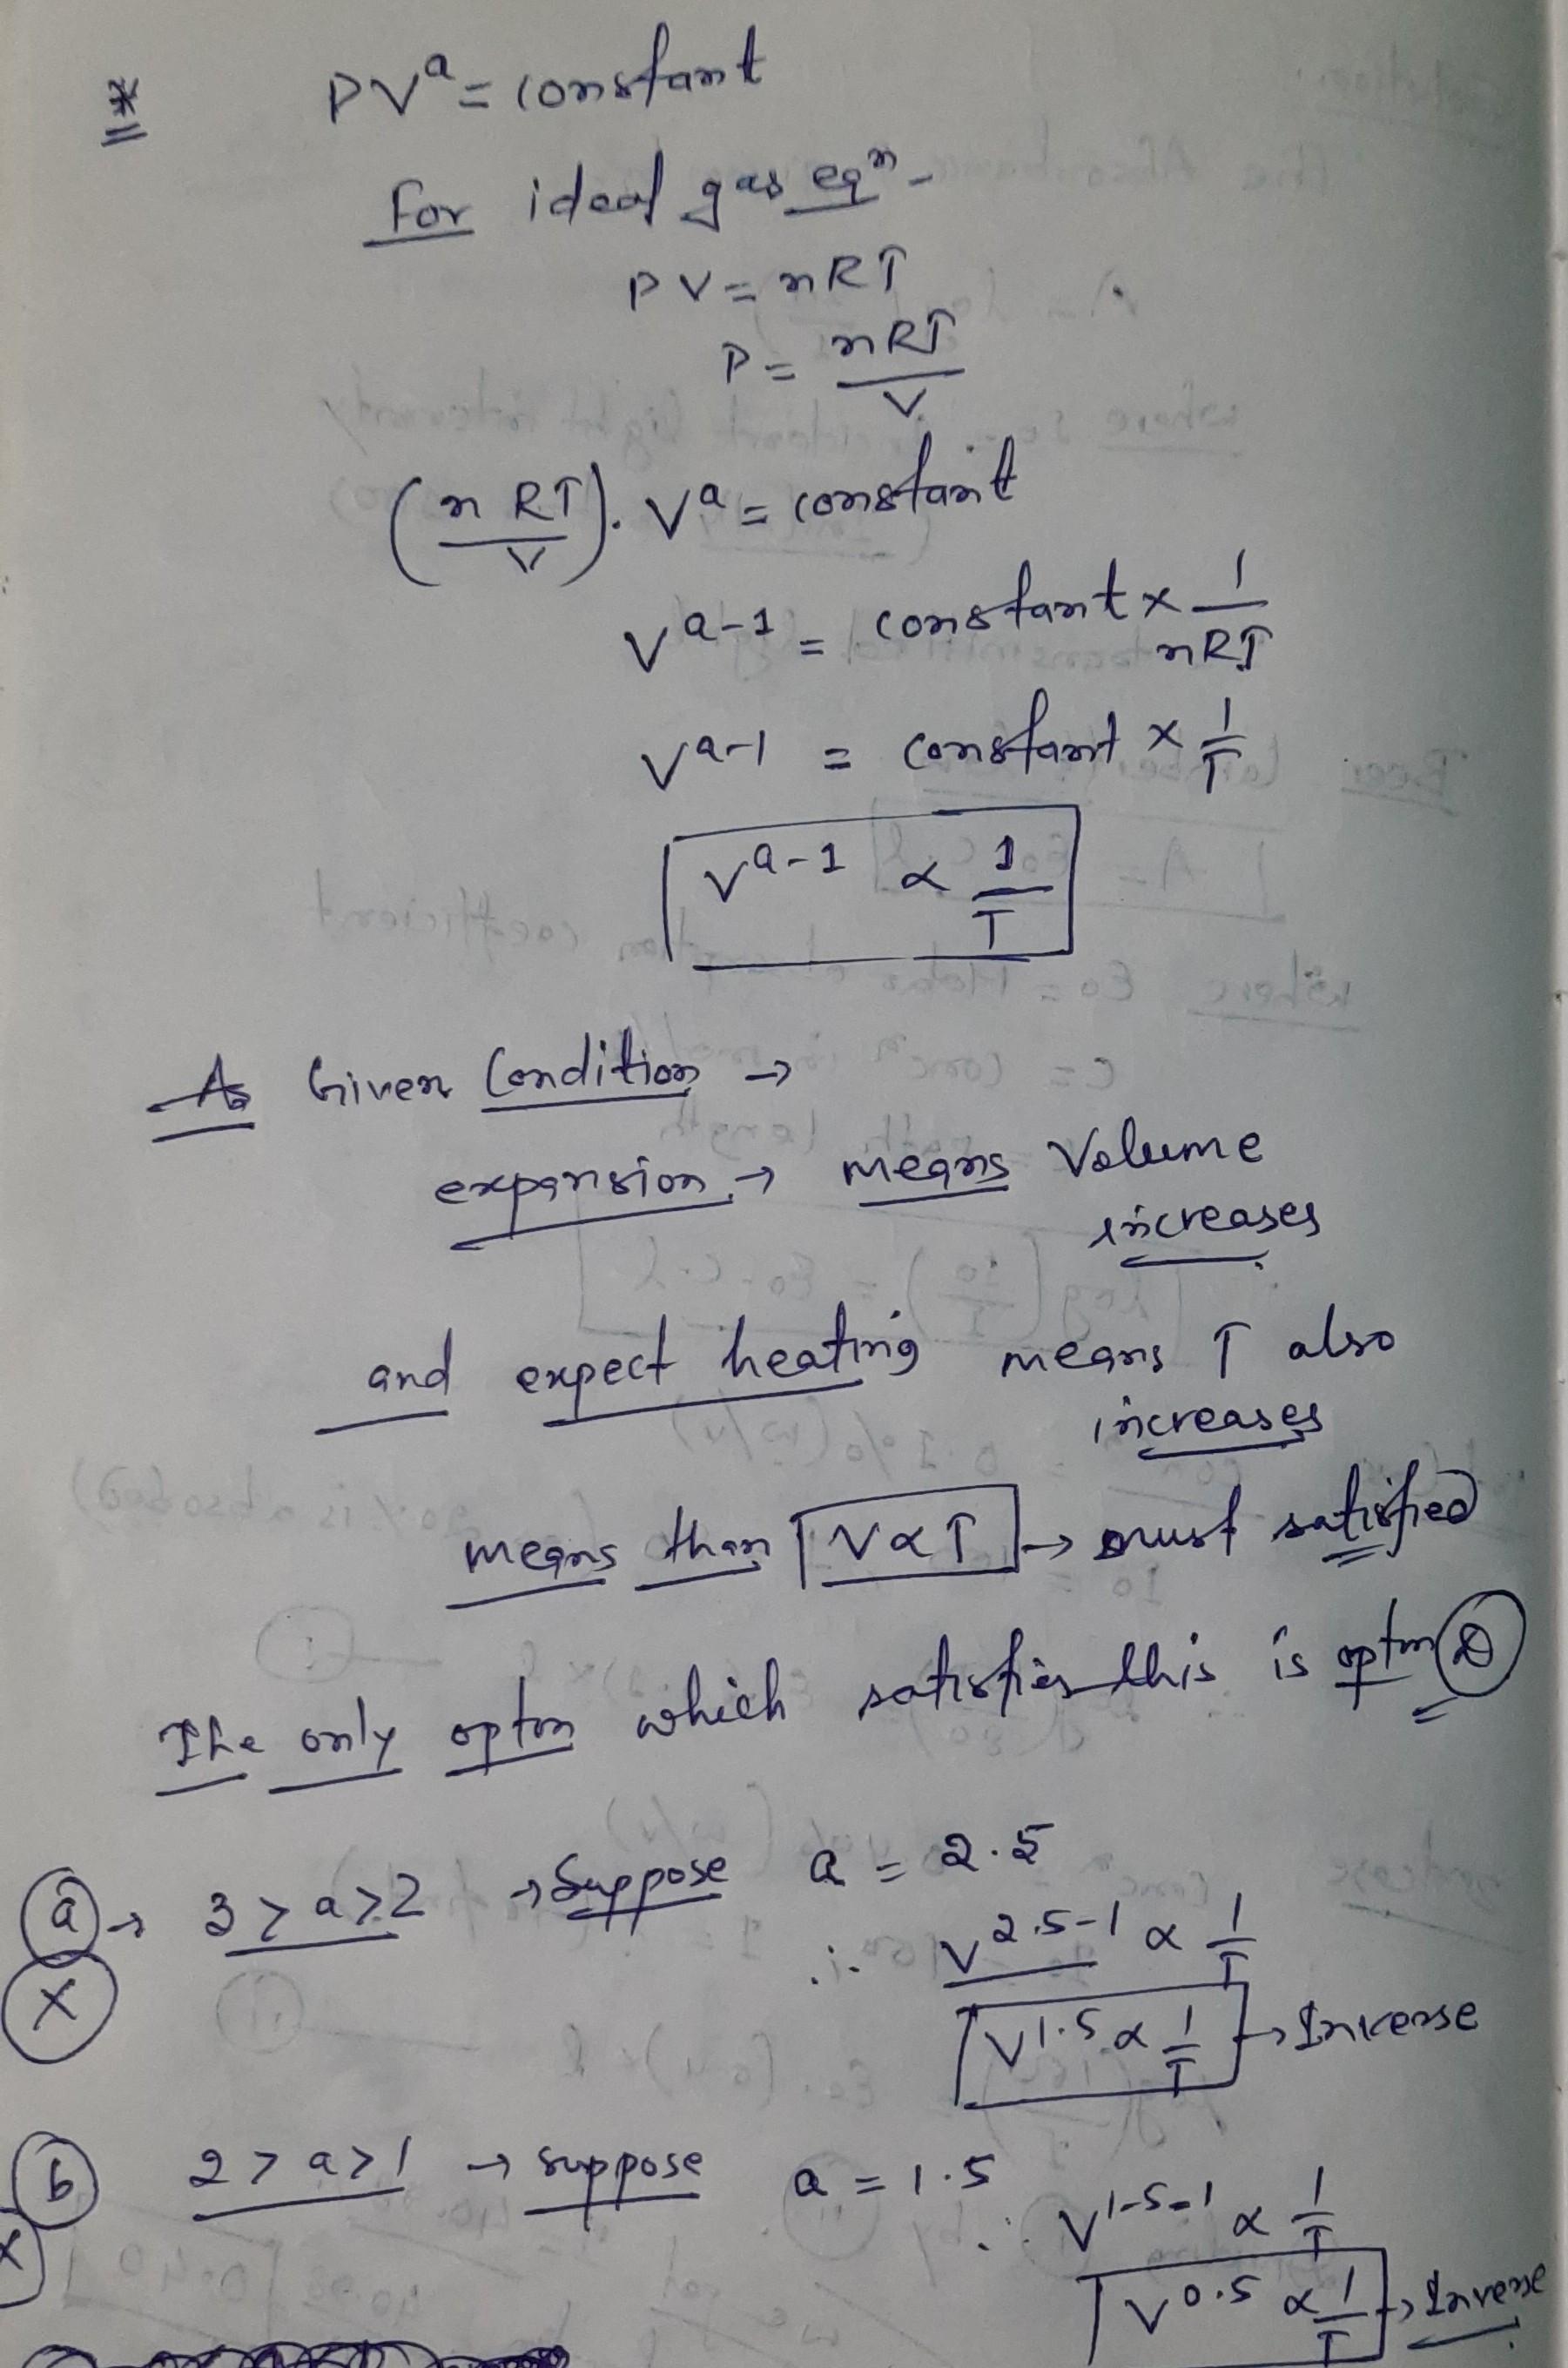 * PVᵃ = constant
For ideal gas eqⁿ-
PV = nRT
P = nRT/V
(nRT/V). Vᵃ = constant
Vᵃ⁻¹ = constant × 1/nRT
Vᵃ⁻¹ = constant × 1/T
Vᵃ⁻¹ ∝ 1/T
As Given Condition →
expansion → means Volume
increases
and expect heating means T also
increases
means than V∝T → must satisfied
The only opton which satisfies this is opton D
a → 3>a>2 → Suppose a = 2.5
X ∴ V²·⁵⁻¹ ∝ 1/T
V¹·⁵ ∝ 1/T → Inverse
b 2>a>1 → suppose a = 1.5
X ∴ V¹·⁵⁻¹ ∝ 1/T
V⁰·⁵ ∝ 1/T → Inverse